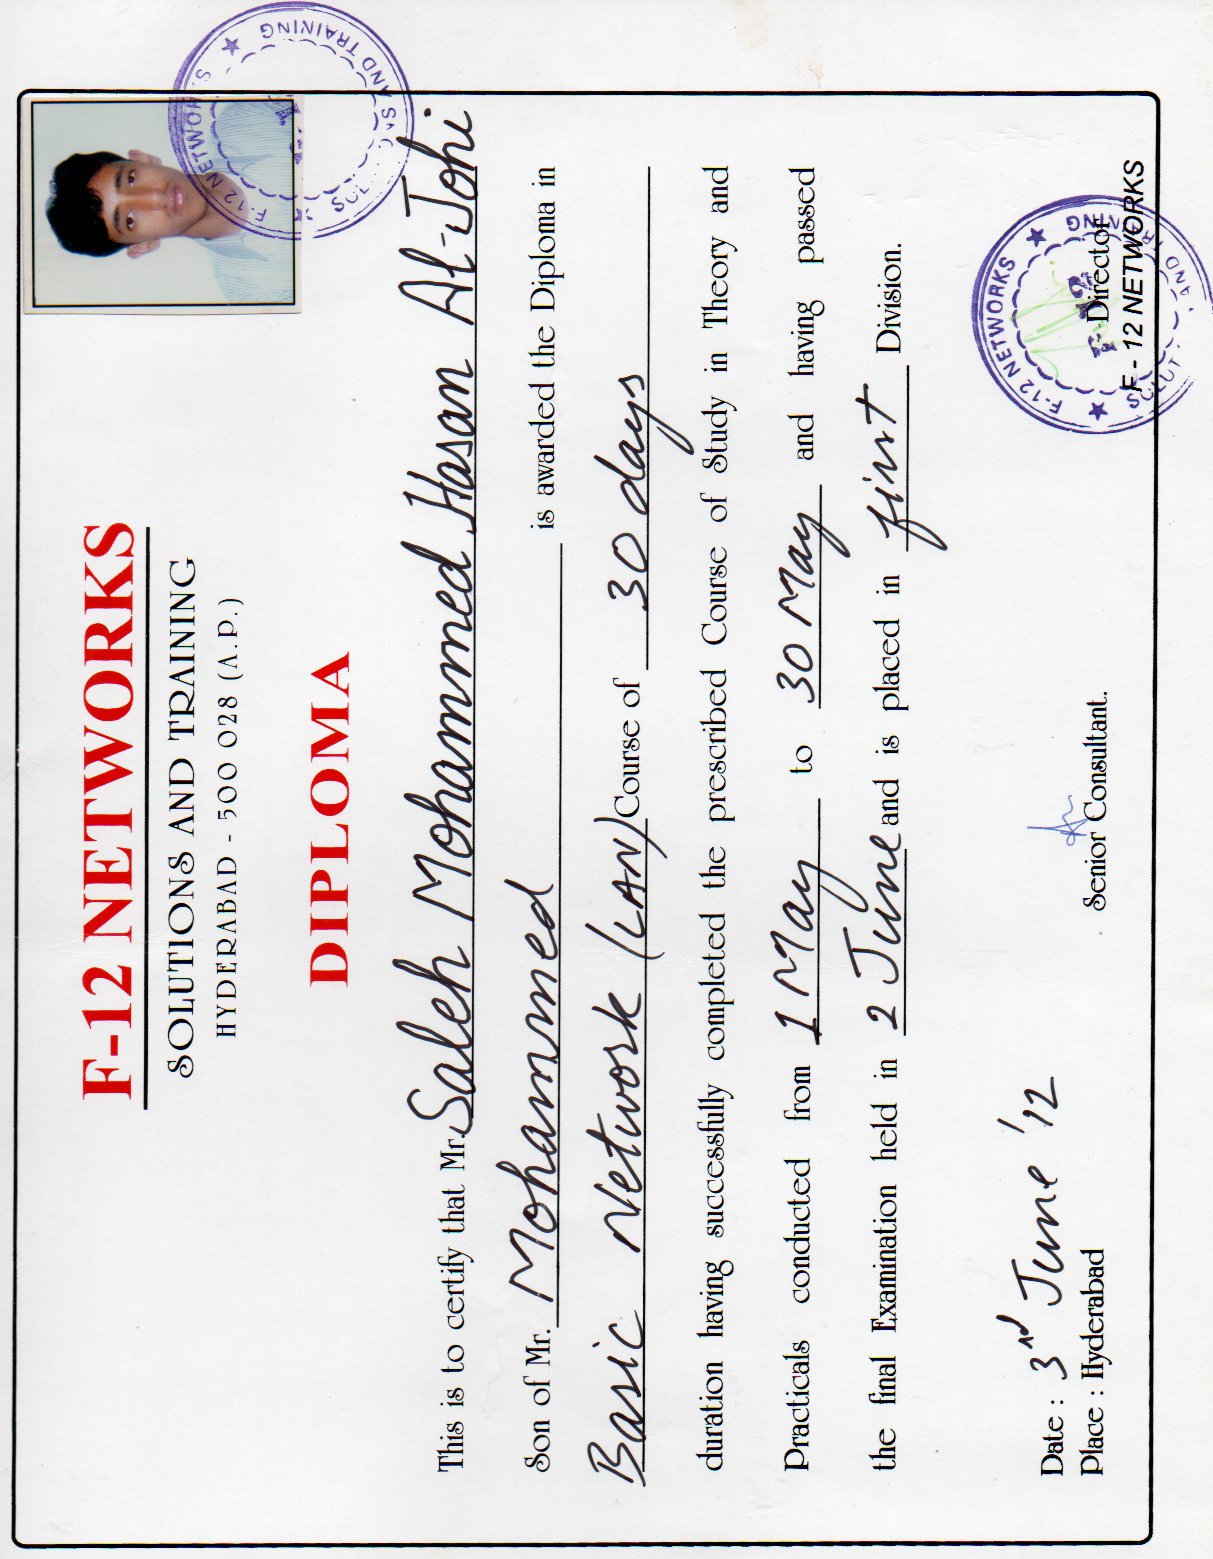 F-12 NETWORKS
SOLUTIONS AND TRAINING
HYDERABAD - 500 028 (A.P.)
DIPLOMA
This is to certify that Mr. Saleh Mohammed Hasan Al-Johi
Son of Mr. Mohammed is awarded the Diploma in
Basic Network (LAN) Course of 30 days
duration having successfully completed the prescribed Course of Study in Theory and
Practicals conducted from 1 May to 30 May and having passed
the final Examination held in 2 June and is placed in first Division.
Date : 3rd June '12
Place : Hyderabad
Senior Consultant.
Director
F - 12 NETWORKS
F-12 NETWORKS ★ SOLUTIONS AND TRAINING ★
F-12 NETWORKS ★ AND TRAINING ★
F-12